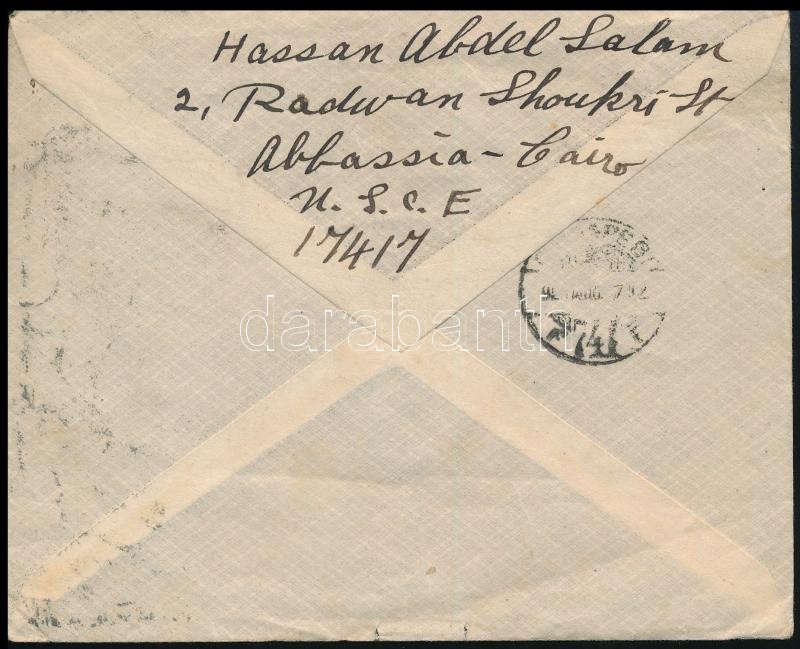 Hassan Abdel Salam
2, Radwan Shoukri St
Abbassia - Cairo
N. S. C. E
17417
darabanth